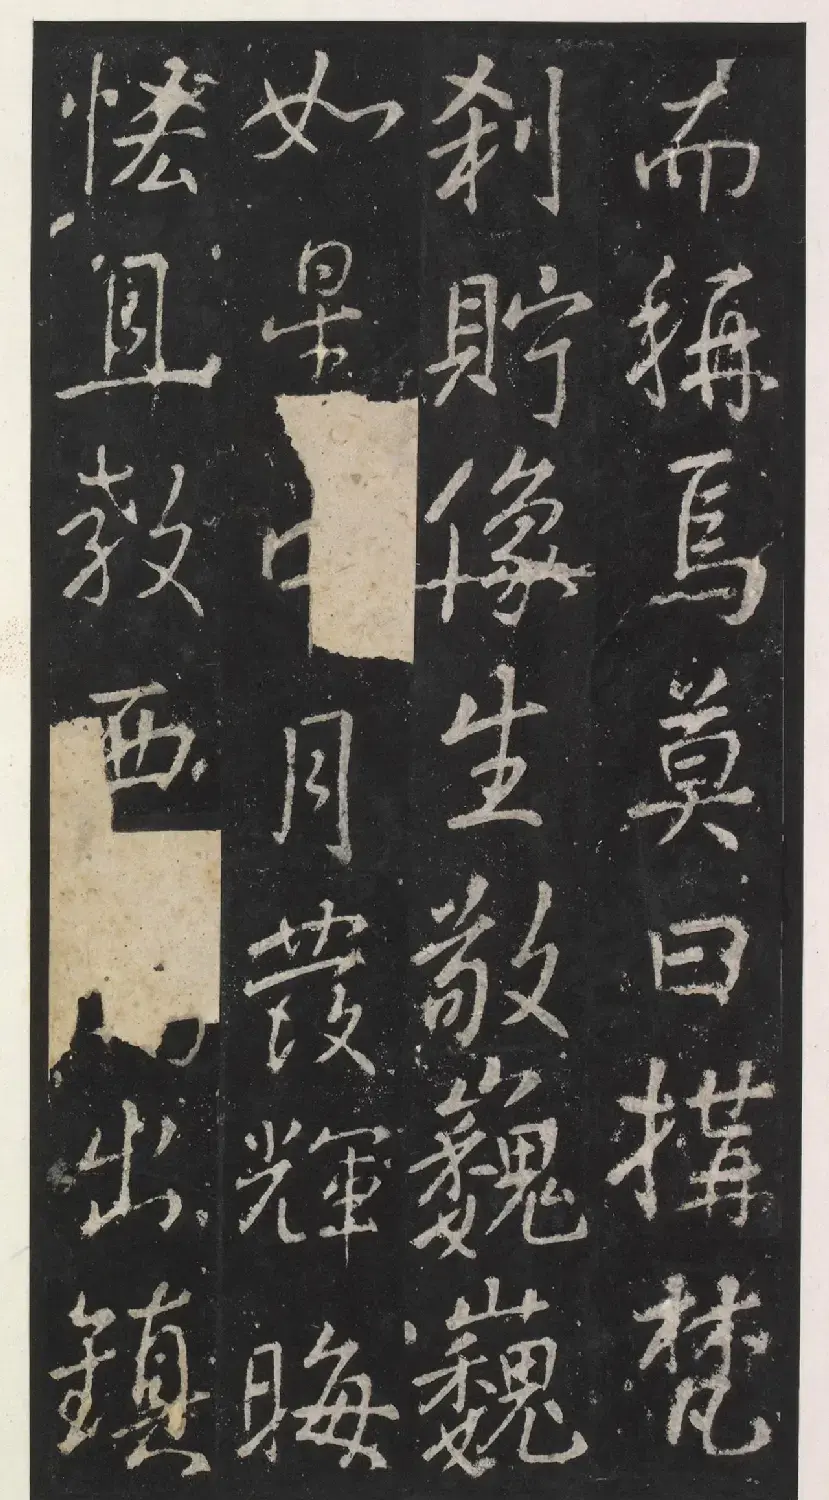 而稱焉莫曰搆梵
刹貯像生敬巍巍
如月發輝晦
教西出鎮